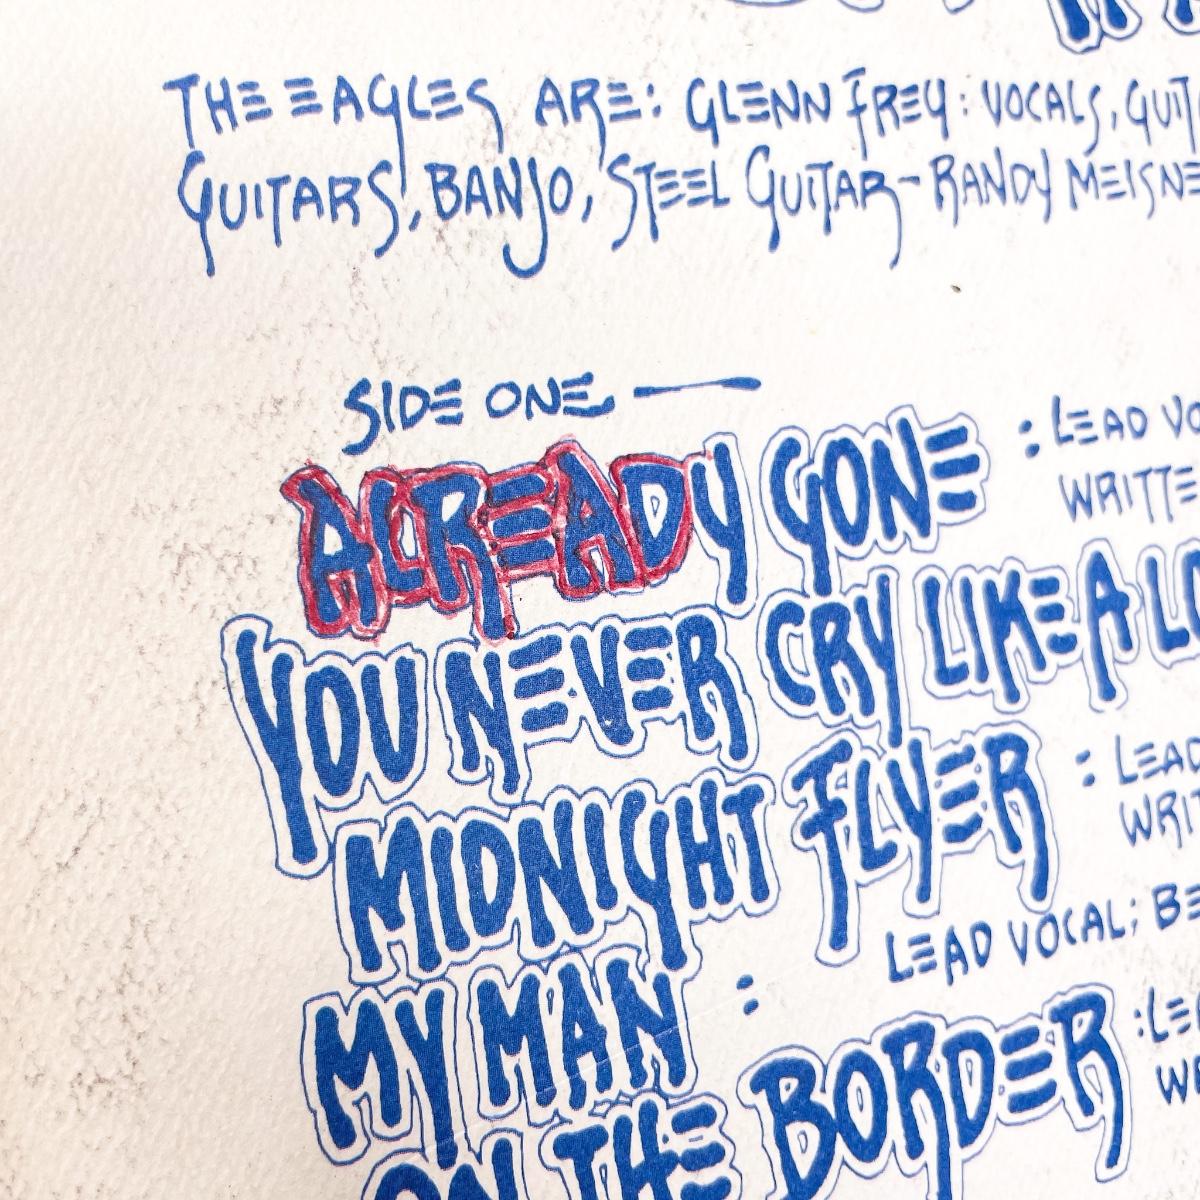 THE EAGLES ARE: GLENN FREY: VOCALS, GUIT
GUITARS, BANJO, STEEL GUITAR-RANDY MEISNE
SIDE ONE —
ALREADY GONE : LEAD VO
WRITTE
YOU NEVER CRY LIKE A LO
MIDNIGHT FLYER : LEAD
WRIT
LEAD VOCAL; BE
MY MAN :
ON THE BORDER :LE
WR